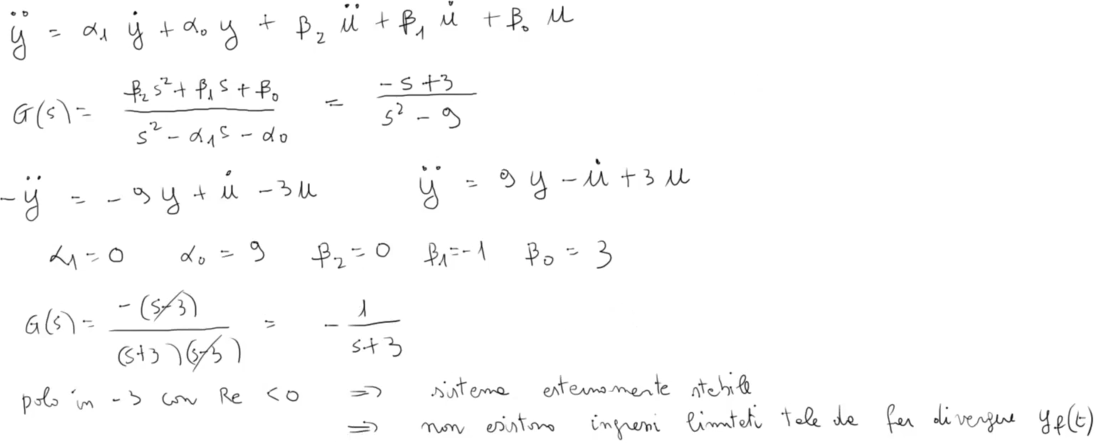 ÿ = α₁ ẏ + α₀ y + β₂ ü + β₁ u̇ + β₀ u
G(s) = (β₂s² + β₁s + β₀) / (s² - α₁s - α₀) = (-s+3) / (s² - 9)
-ÿ = -9y + u̇ - 3u ÿ = 9y - u̇ + 3u
α₁ = 0 α₀ = 9 β₂ = 0 β₁ = -1 β₀ = 3
G(s) = -(s-3) / (s+3)(s-3) = - 1 / (s+3)
polo in -3 con Re < 0 => sistema esternamente stabile
=> non esistono ingressi limitati tale da far divergere y_f(t)